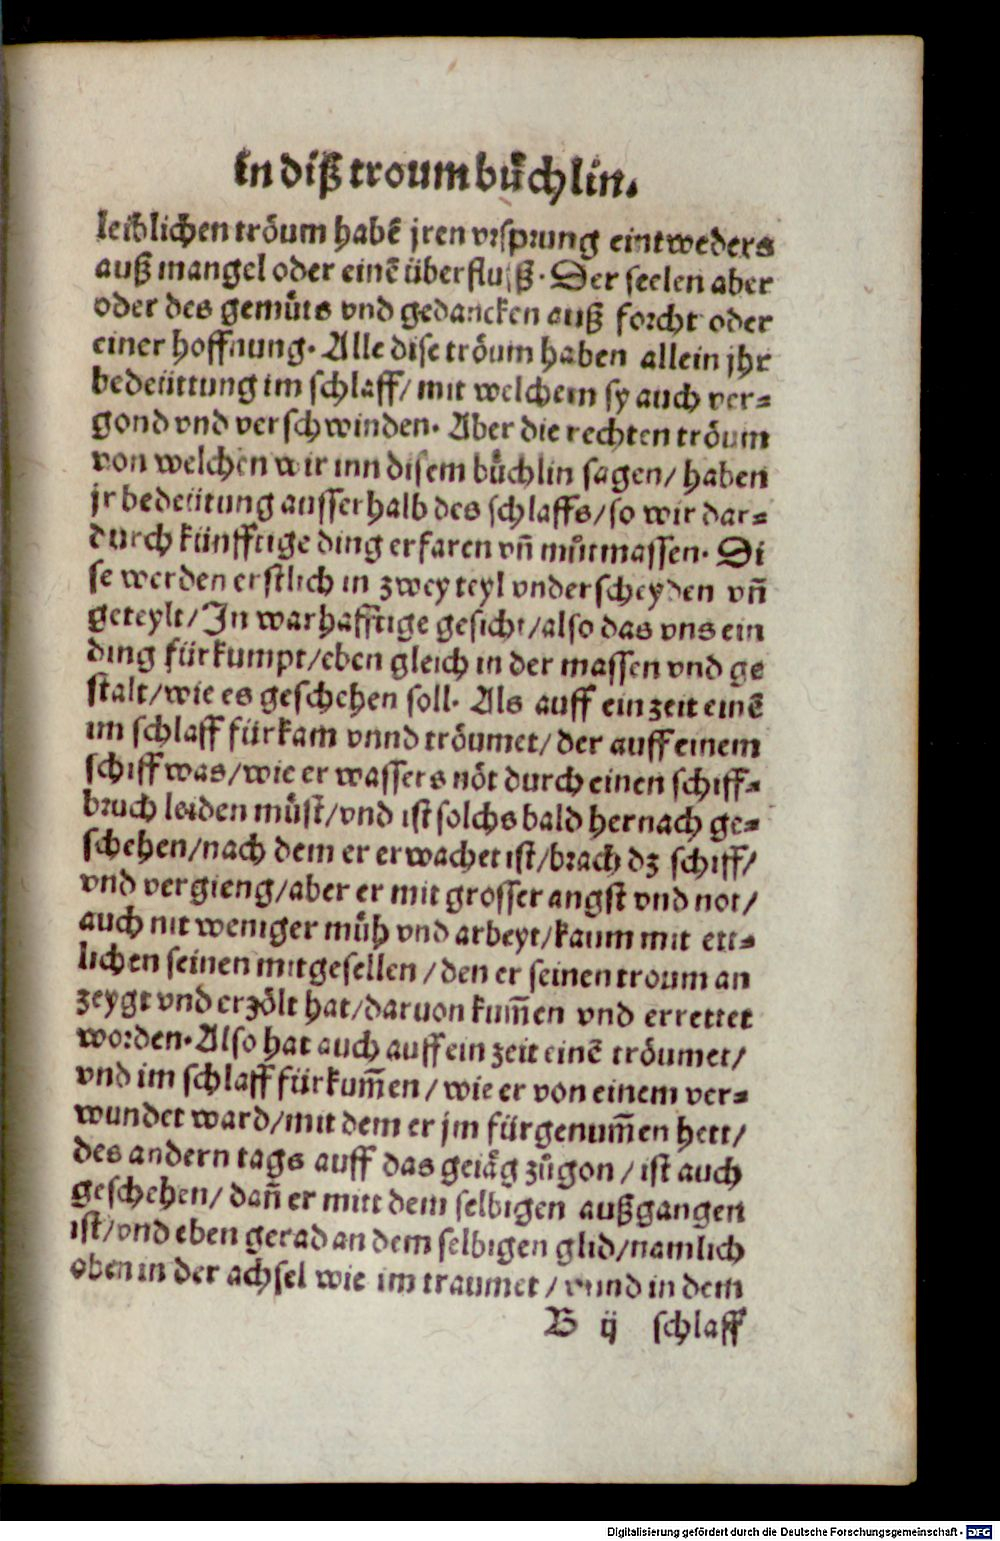 in diß troum buͤchlin.
leiblichen troͤum habẽ jren vrsprung eintweders
auß mangel oder einẽ überfluſß. Der seelen aber
oder des gemuͤts vnd gedancken auß forcht oder
einer hoffnung. Alle dise troͤum haben allein jhr
bedeüttung im schlaff/ mit welchem sy auch ver-
gond vnd verschwinden. Aber die rechten troͤum
von welchen wir inn disem buͤchlin sagen/ haben
jr bedeütung ausserhalb des schlaffs/ so wir dar-
durch künfftige ding erfaren vñ muͦtmassen. Di
se werden erstlich in zwey teyl vnderscheyden vñ
geteylt/ In warhafftige gesicht/ also das vns ein
ding fürkumpt/ eben gleich in der massen vnd ge
stalt/ wie es geschehen soll. Als auff ein zeit einẽ
im schlaff fürkam vnnd troͤumet/ der auff einem
schiff was/ wie er wassers noͤt durch einen schiff-
bruch leiden muͤst/ vnd ist solchs bald hernach ge-
schehen/ nach dem er erwachet ist/ brach dz schiff/
vnd vergieng/ aber er mit grosser angst vnd not/
auch nit weniger muͤh vnd arbeyt/ kaum mit ett-
lichen seinen mitgesellen/ den er seinen troum an
zeygt vnd erzoͤlt hat/ daruon kum̃en vnd errettet
worden. Also hat auch auff ein zeit einẽ troͤumet/
vnd im schlaff fürkum̃en/ wie er von einem ver-
wundet ward/ mit dem er jm fürgenum̃en hett/
des andern tags auff das geiaͤg zuͦgon/ ist auch
geschehen/ dañ er mitt dem selbigen außgangen
ist/ vnd eben gerad an dem selbigen glid/ namlich
oben in der achsel wie im traumet/ vnnd in dem
B ij schlaff
Digitalisierung gefördert durch die Deutsche Forschungsgemeinschaft - DFG